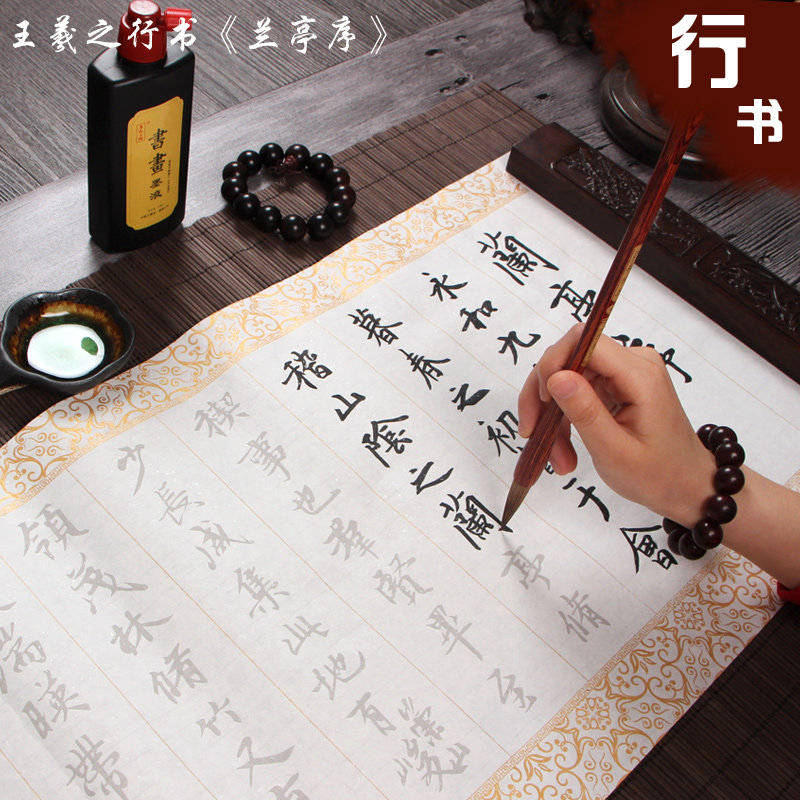 王羲之行书《兰亭序》
行
书
書畫墨液
蘭亭
永和九
暮春之初會于會
稽山陰之蘭亭脩
禊事也羣賢畢至
少長咸集此地有崇峻
領茂林脩竹又有
湍暎帶